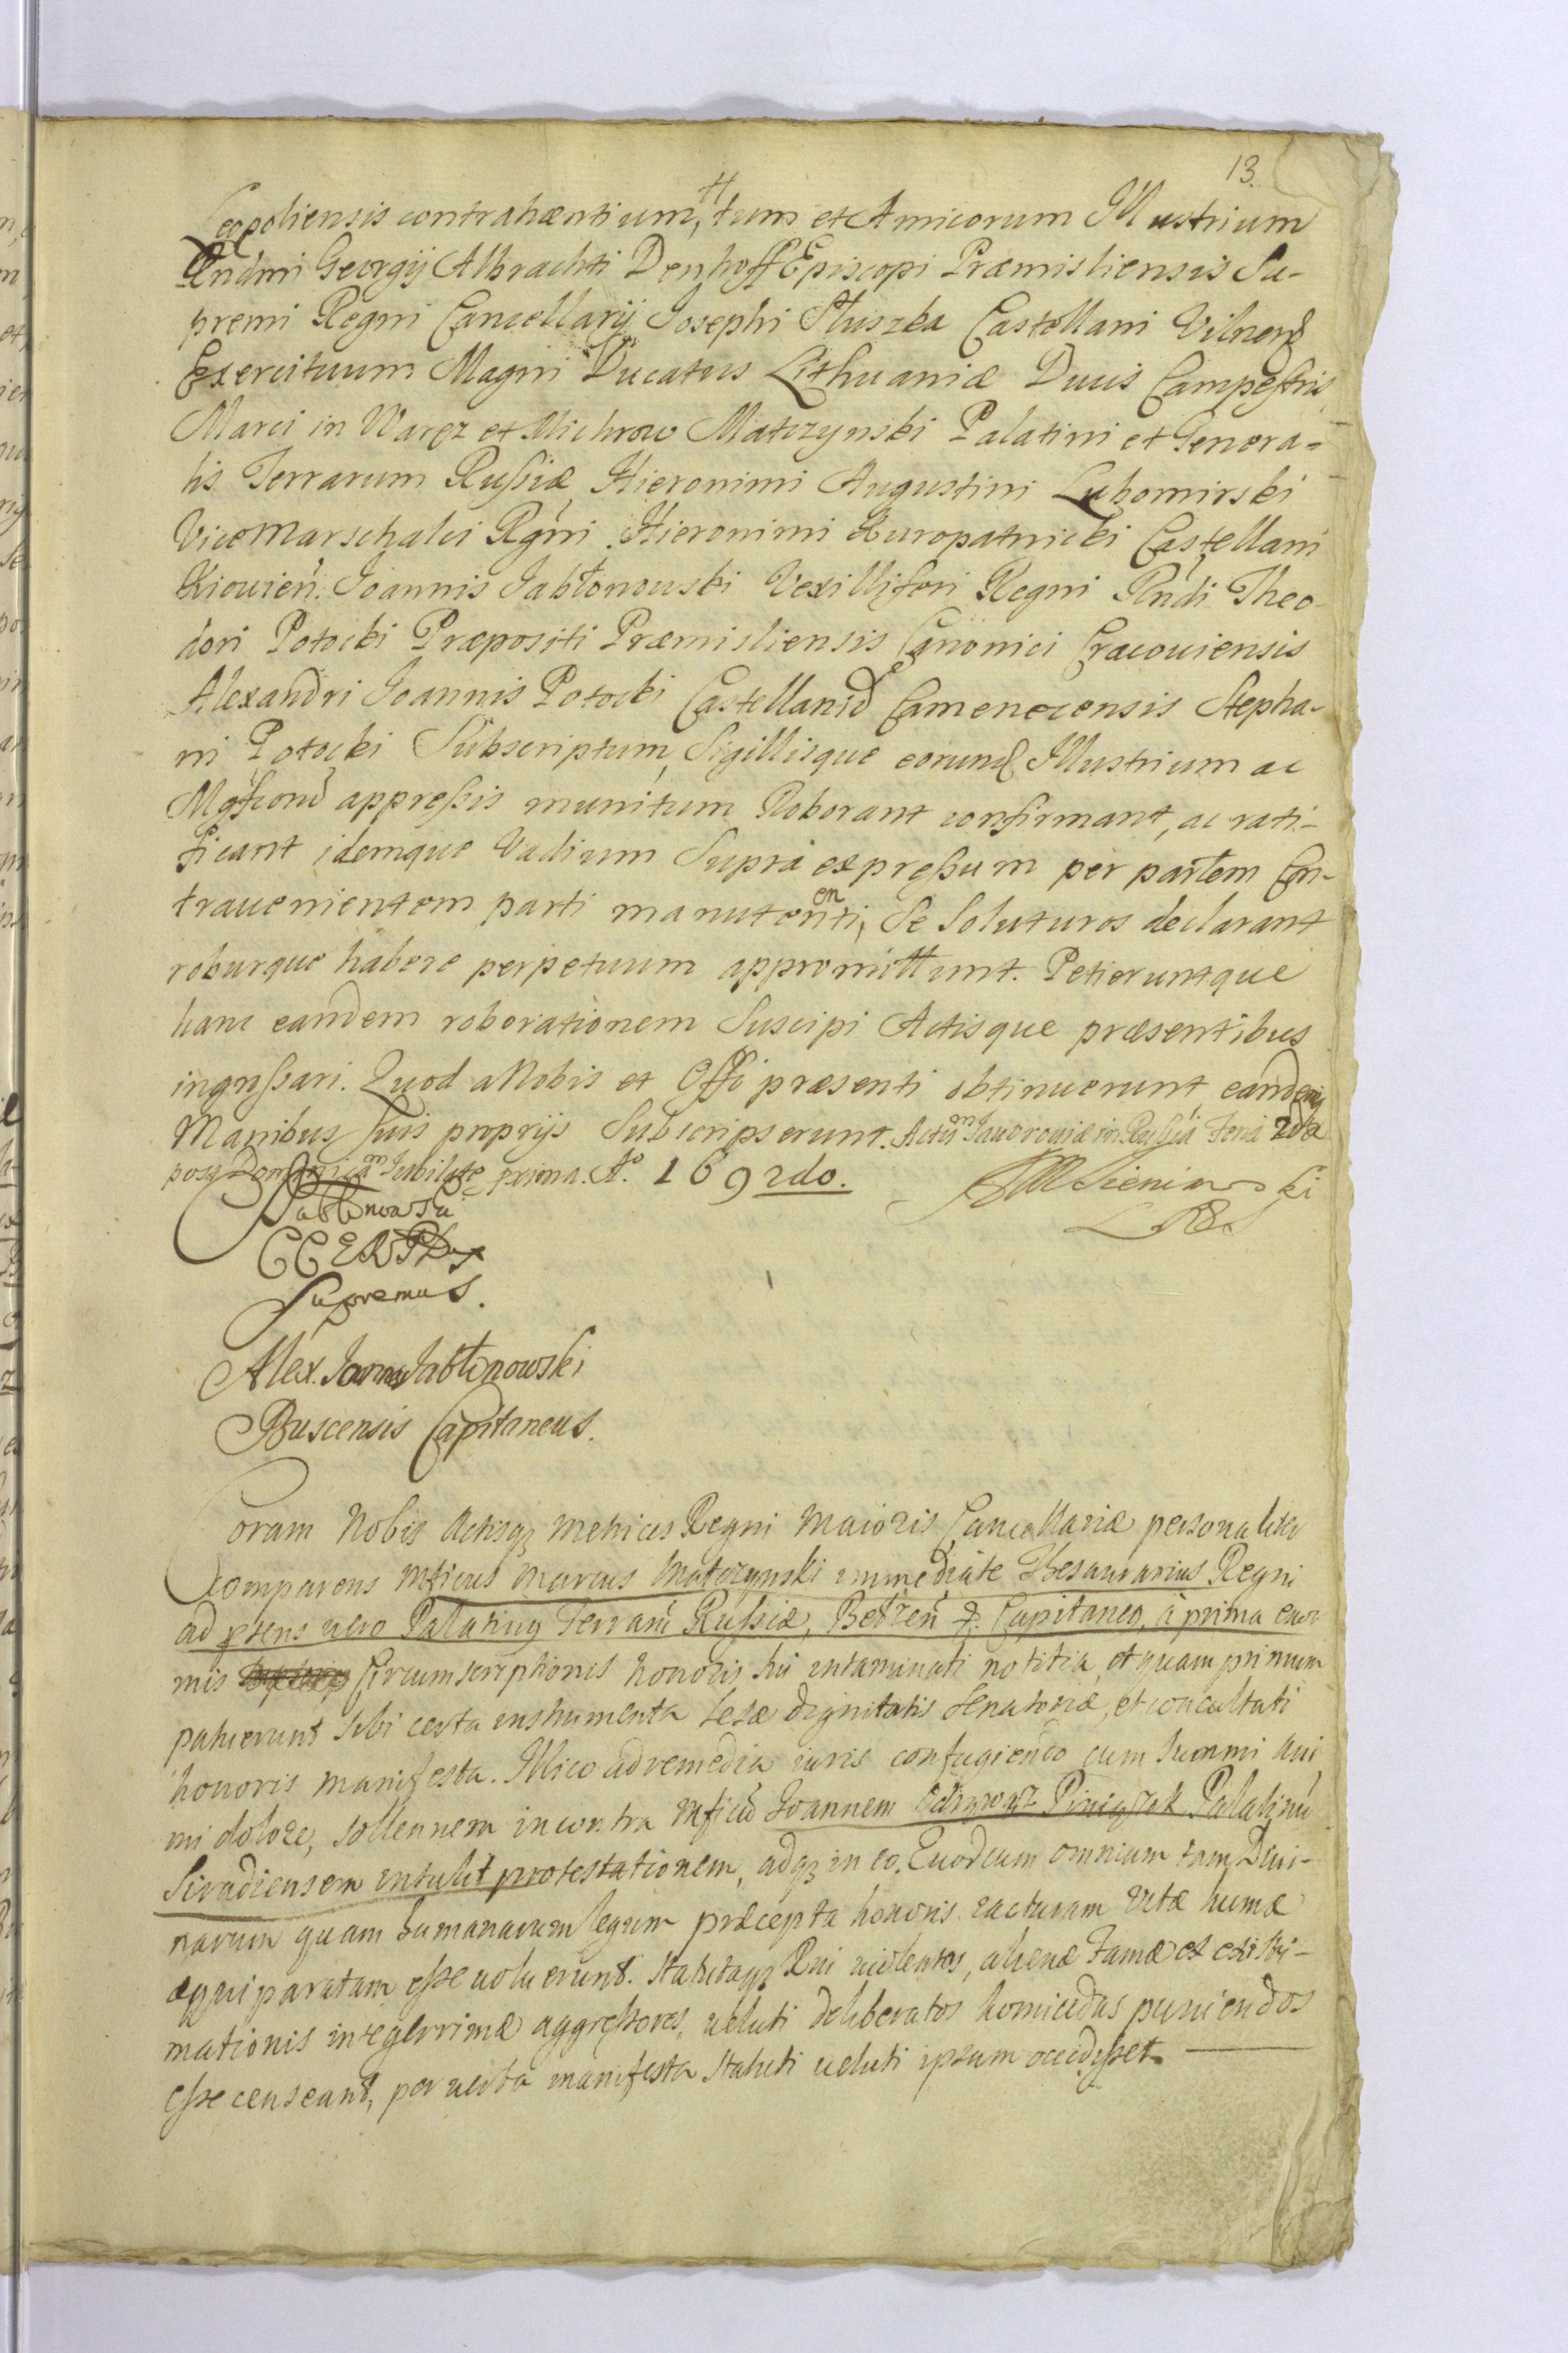 13.
Leopoliensis contrahentium, tum et Amicorum Illustrium
Rndmi Georgij Albrachti Denhoff Episcopi Præmisliensis Su-
premi Regni Cancellarij Josephi Słuszka Castellani Vilnens
Exercituum Magni Ducatus Lithuaniæ Ducis Campestris,
Marci in Waręz et Michrow Matczynski Palatini et Genera-
lis Terrarum Russiæ, Hieronimi Augustini Lubomirski
Vicemarschalci Rgni Hieronimi Kuropatnicki Castellani
Kiouien. Joannis Jabłonouski Vexilliferi Regni Rndi Theo-
dori Potocki Præpositi Præmisliensis Canonici Cracouiensis
Alexandri Joannis Potocki Castellanid Camenecensis Stepha-
ni Potocki Subscriptum, Sigillisque eorund Illustrium ac
appressis munitum Roborant confirmant, ac rati-
ficant idemque Vadium Supra expressum per partem Con-
trauenientem parti manutenenti, Se Soluturos declarant
roburque habere perpetuum appromittunt. Petieruntque
hanc eandem roborationem Suscipi Actisque præsentibus
ingrssari. Quod a Nobis et Offi præsenti obtinuerunt eandemq
Manibus suis proprijs Subscripserunt. Actum Jauorouiæ in Russia Feria 2da
post Dominicam Jubilate prima. Ao. 1692do.
Jabłonowski
Sieniawski
CCERP Dux
Supremus.
Alex. Joannes Jabłonowski
Buscensis Capitaneus.
Coram Nobis Actisq Metrices Regni Maioris Cancellariæ personaliter
comparens Mficus Marcus Matczynski immediate Thesaurarius Regni
ad præsens uero Palatinus Terrarū Russiæ, Bełzen Capitaneus, à prima enor-
mis Circumscriptionis honoris sui intaminati notitia, et quam primum
patuerunt sibi certa instrumenta lesæ dignitatis Senatoriæ, et conculcati
honoris manifesta. Illico ad remedia iuris confugiendo cum summi ani
mi dolore, sollennem in contra Mficū Joannem Odrowąz Pieniązek Palatinū
Siradiensem intulit protestationem, adq in eo. Quod cum omnium tam Diui-
narum quam humanarum legum præcepta honoris iacturam uitæ humæ
æquiparatam esse uoluerunt. Statutaq Rni uiolentos, alienæ famæ et existi-
mationis integerrimæ aggressores, ueluti deliberatos homicidas puniendos
esse censeant, per uerba manifesta Statuti ueluti ipsum occidisset.